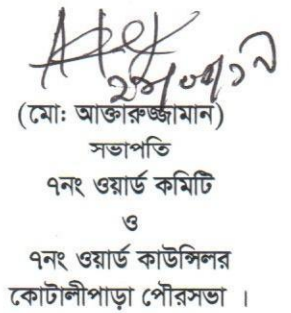 (মোঃ আক্তারুজ্জামান)
সভাপতি
৭নং ওয়ার্ড কমিটি
ও
৭নং ওয়ার্ড কাউন্সিলর
কোটালীপাড়া পৌরসভা ।